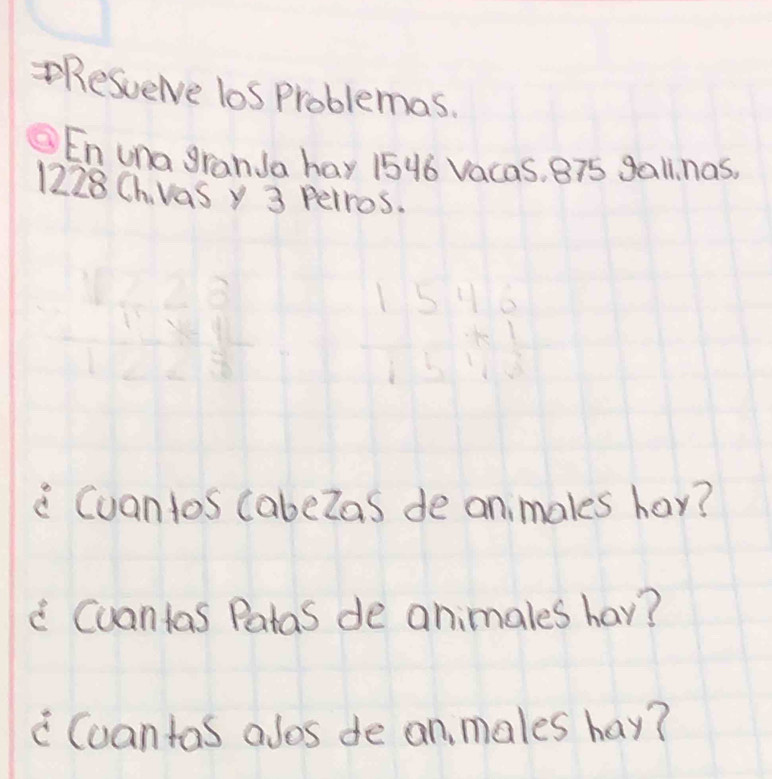 ⇒Resuelve los Problemas.
a En una granJa hay 1546 vacas. 875 gallinas.
1228 Chivas y 3 Perros.
1228 1546
× 1 × 1
122 154
¿Cuantos cabezas de animales hay?
¿Cuantas Patas de animales hay?
¿Cuantas aJos de animales hay?